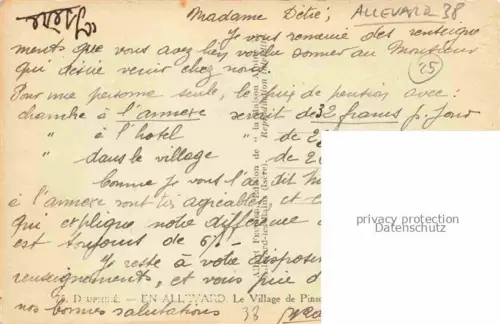 Madame Détré, ALLEVARD 38
Je vous remercie des renseigne
ments que vous avez bien voulu donner au Monsieur
qui désire venir chez nous.
25
Pour une personne seule, le prix de pension avec:
chambre à l'annexe serait de 32 francs p. jour
" à l'hotel " de 2
" dans le village " de 2
Comme je vous l'ai dit
à l'annexe sont très agréables et
qui explique notre différence
est toujours de 6%
Je reste à votre dispos
renseignements, et vous prie d
nos bonnes salutations
38
DAUPHINÉ. — EN ALLEVARD. Le Village de Pins
privacy protection
Datenschutz